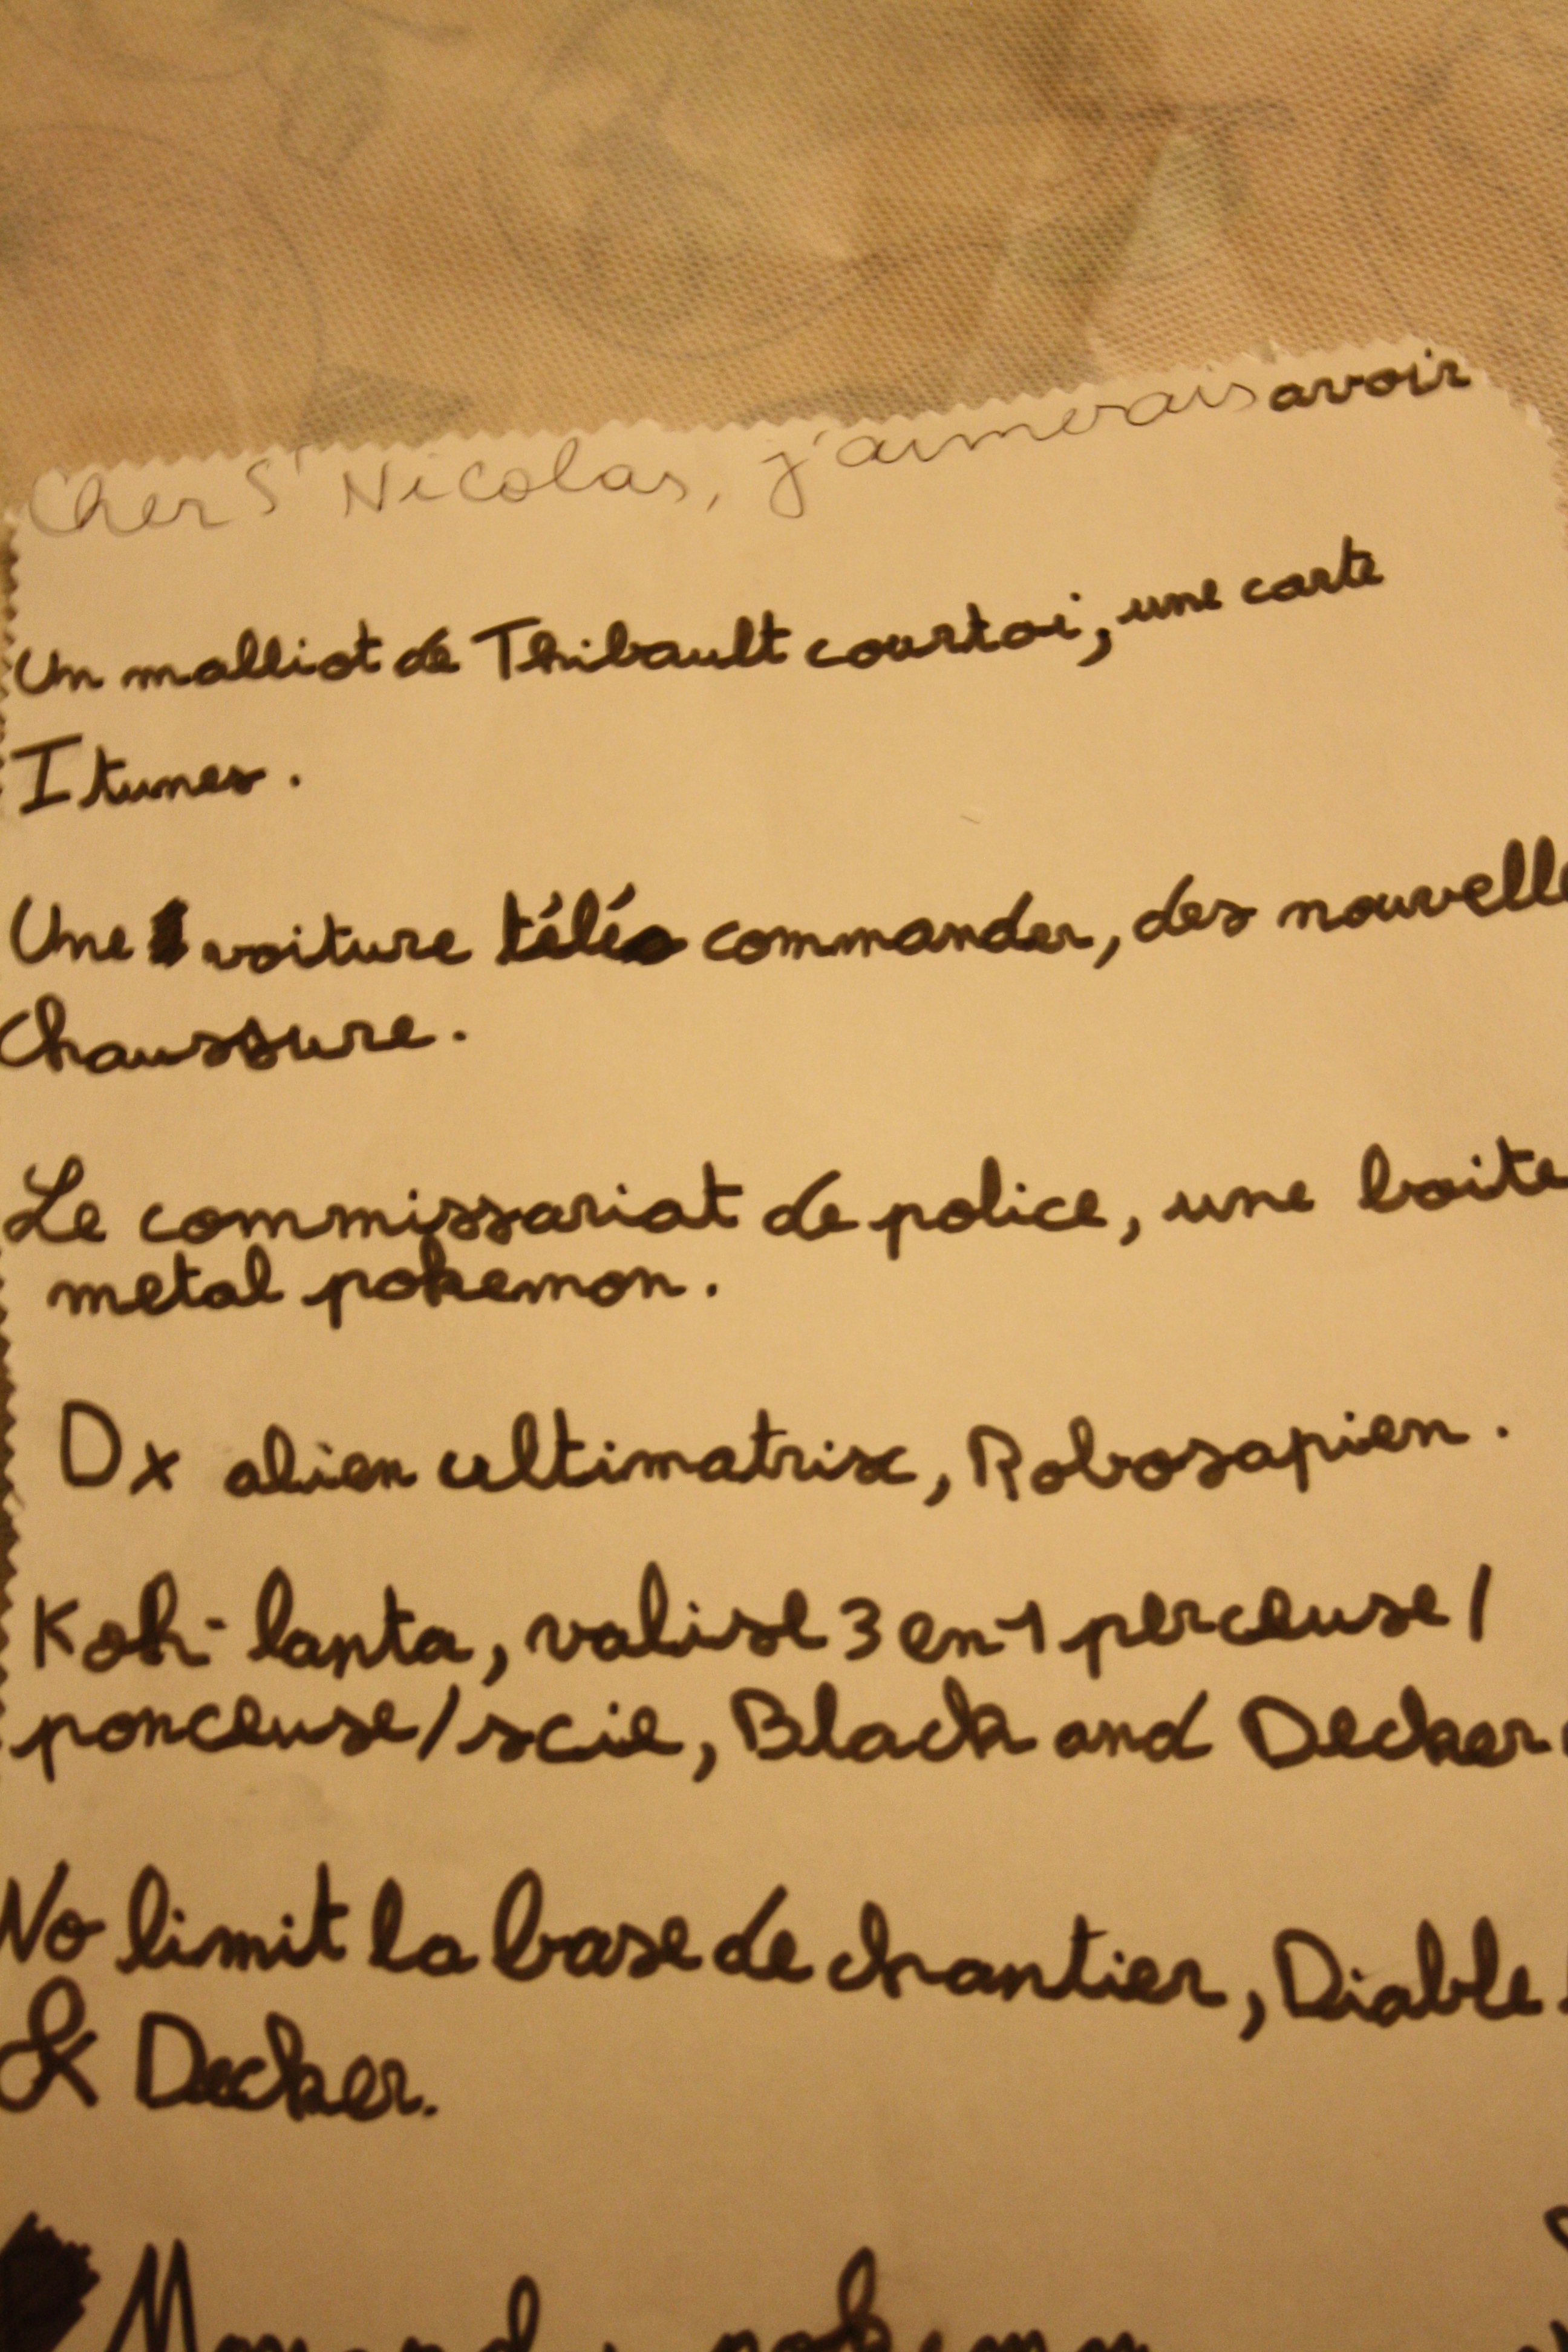 Cher St Nicolas, j'aimerais avoir
Un malliot de Thibault courtoi, une carte
Itunes.
Une voiture télé commander, des nouvelle
Chaussure.
Le commissariat de police, une boite
metal pokemon.
Dx alien ultimatrix, Robosapien.
Koh-lanta, valise 3 en 1 perceuse/
ponceuse/scie, Black and Decker
No limit la base de chantier, Diable
& Decker.
pokemon